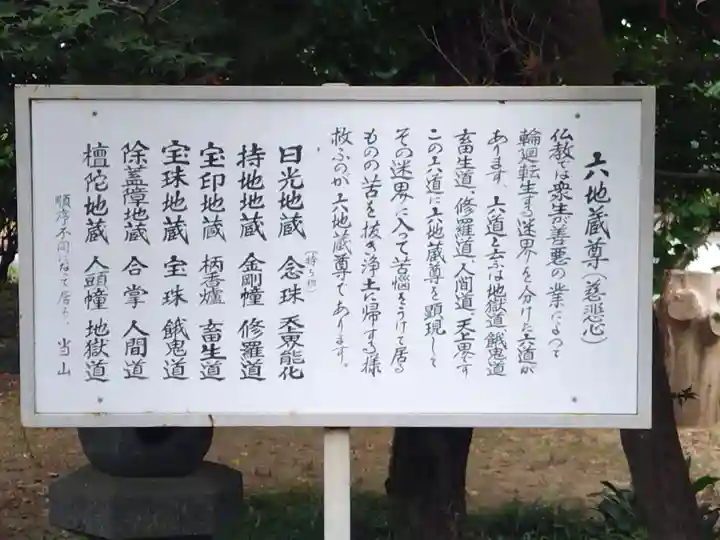 六地蔵尊(慈悲心)
仏教では衆生が善悪の業によつて
輪廻転生する迷界を分けた六道が
あります、六道と云ふは地獄道、餓鬼道
畜生道、修羅道、人間道、天上界です
この六道に六地蔵尊を顕現して
その迷界に入って苦悩をうけて居る
ものの苦を抜き浄土に帰する様
救ふのが六地蔵尊であります。
(持ち物)
日光地蔵 念珠 天界能化
持地地蔵 金剛幢 修羅道
宝印地蔵 柄香爐 畜生道
宝珠地蔵 宝珠 餓鬼道
除蓋障地蔵 合掌 人間道
檀陀地蔵 人頭幢 地獄道
順序不同になって居る、当山